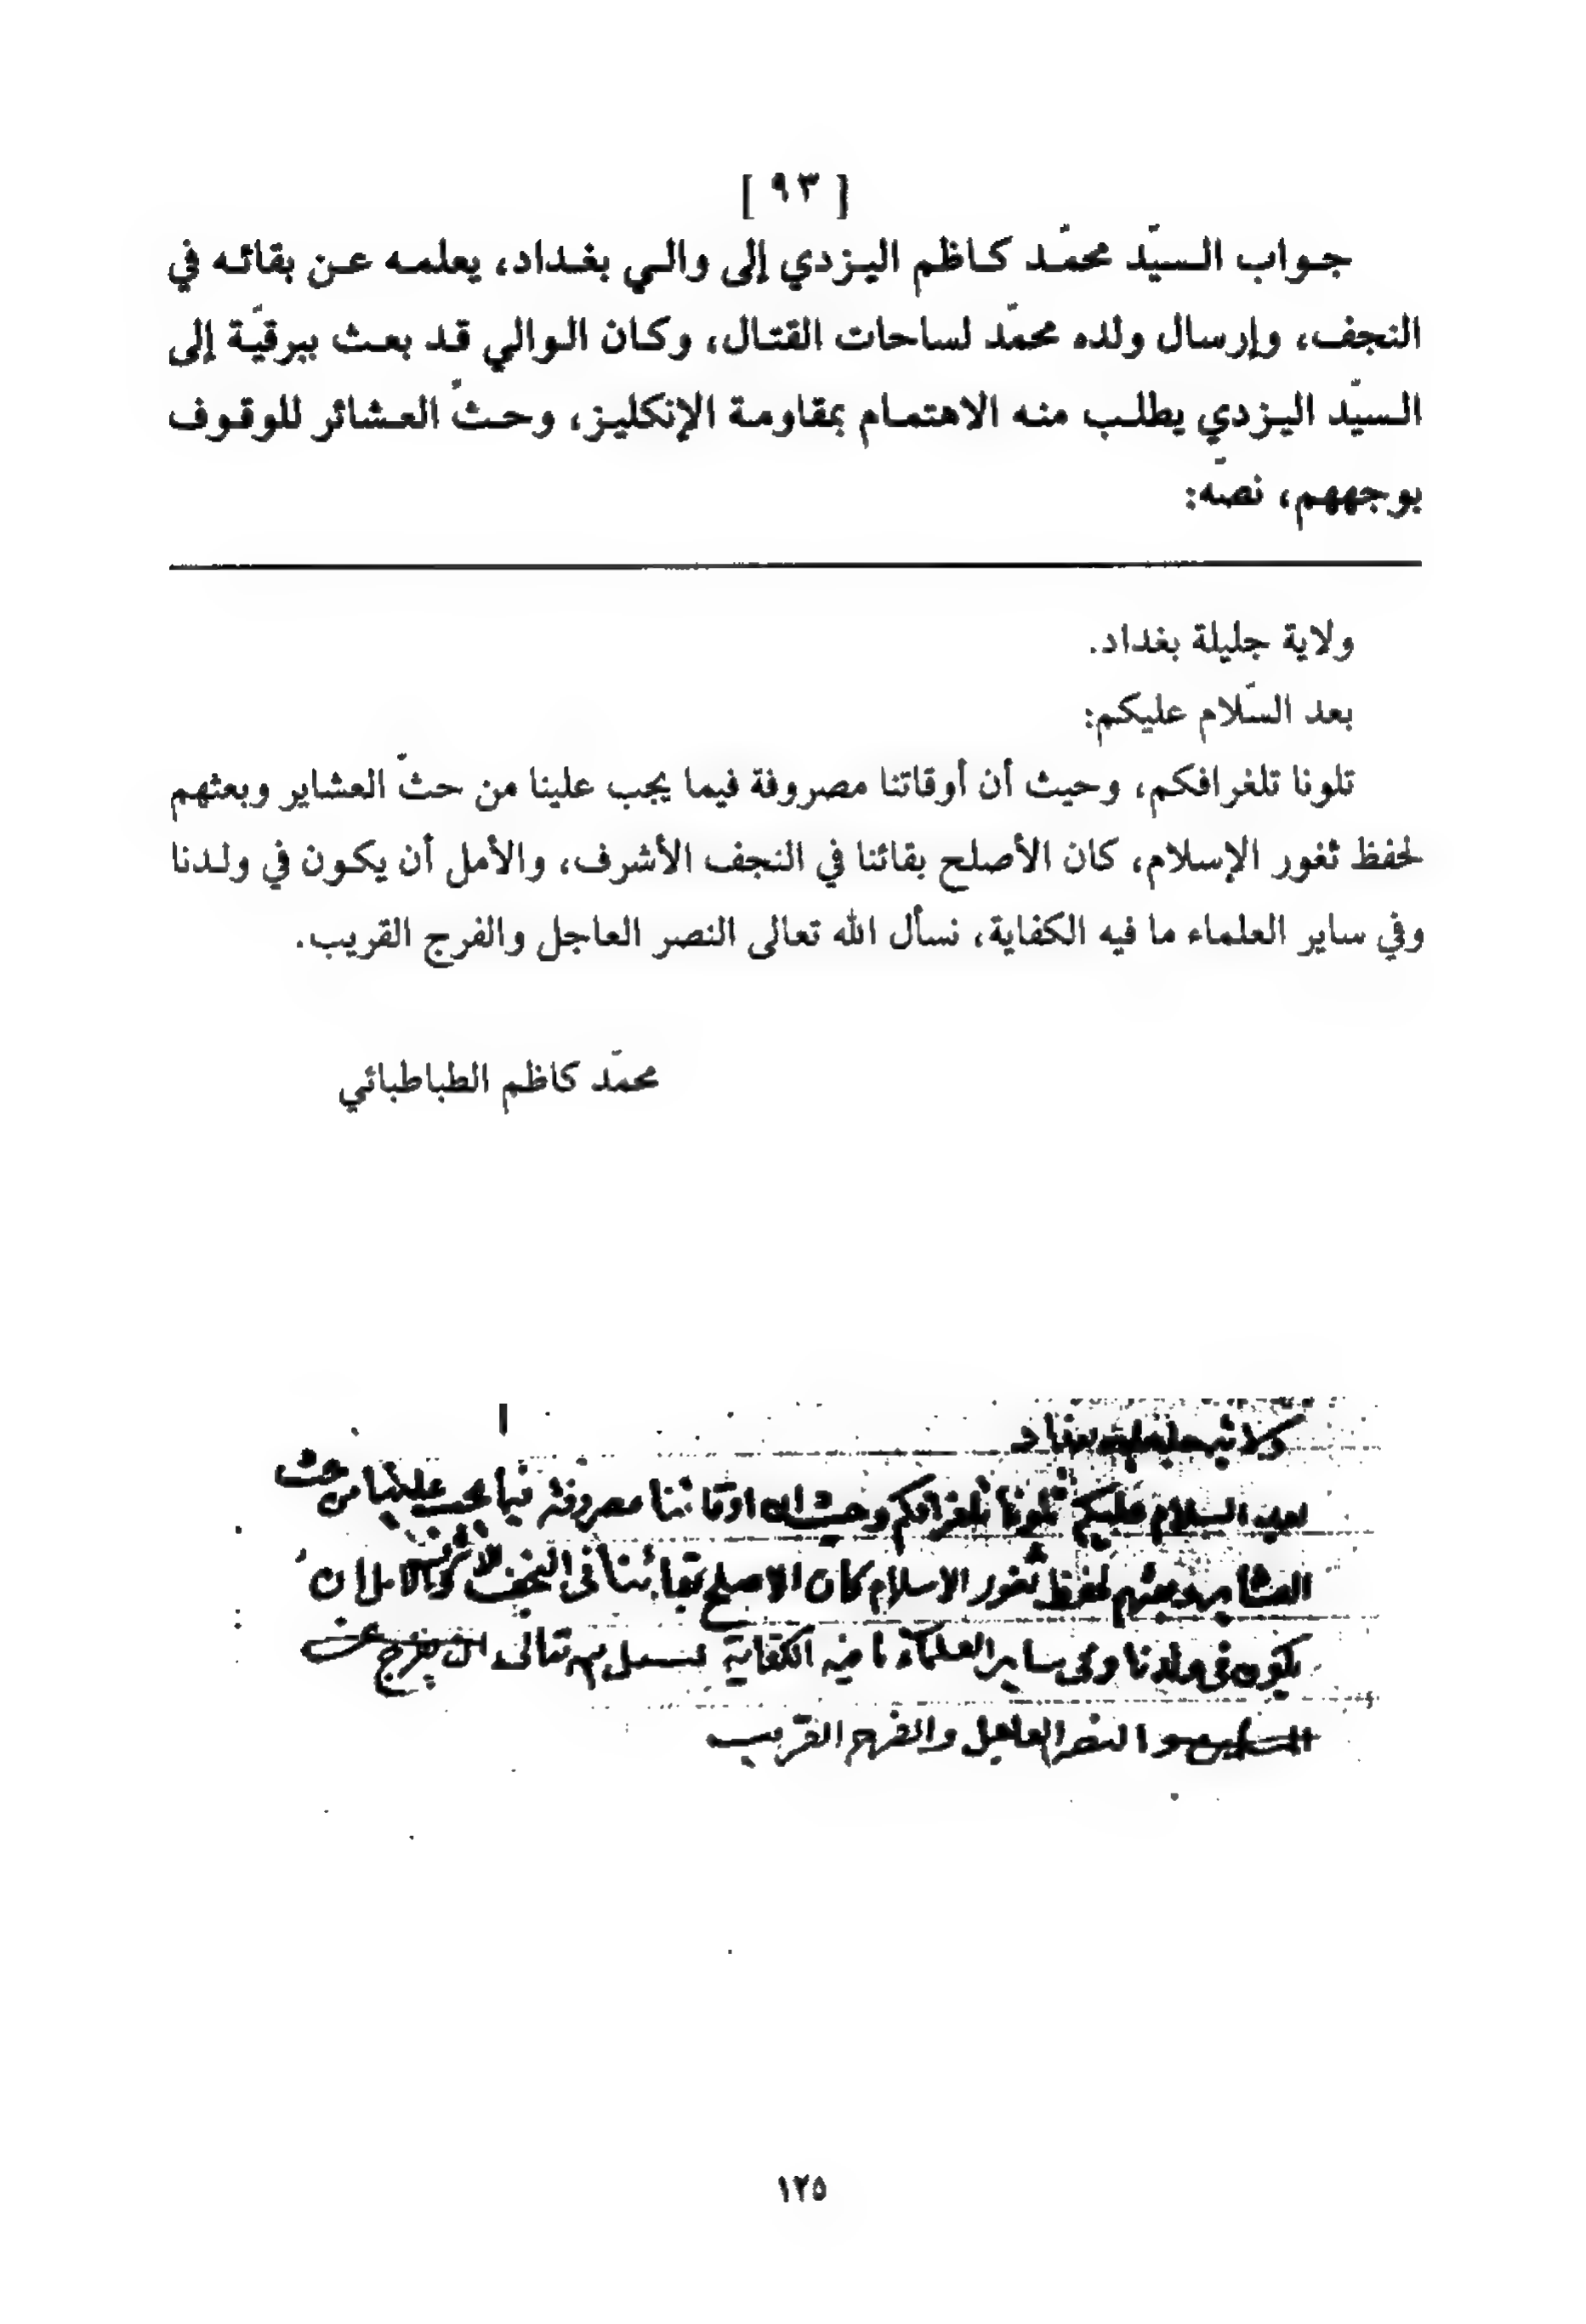 [ ٩٣ ]
جواب السيّد محمّد كاظم اليزدي إلى والي بغداد، يعلمه عن بقائه في
النجف، وإرسال ولده محمّد لساحات القتال، وكان الوالي قد بعث ببرقيّة إلى
السيّد اليزدي يطلب منه الاهتمام بمقاومة الإنكليز، وحثّ العشائر للوقوف
بوجههم، نصّه:
ولاية جليلة بغداد.
بعد السّلام عليكم:
تلونا تلغرافكم، وحيث أن أوقاتنا مصروفة فيما يجب علينا من حثّ العشاير وبعثهم
لحفظ ثغور الإسلام، كان الأصلح بقائنا في النجف الأشرف، والأمل أن يكون في ولدنا
وفي ساير العلماء ما فيه الكفاية، نسأل الله تعالى النصر العاجل والفرج القريب.
محمّد كاظم الطباطبائي
ولاية جليلة بغداد
بعد السلام عليكم تلونا تلغرافكم وحيث ان اوقاتنا مصروفة فيما يجب علينا من حث
العشاير وبعثهم لحفظ ثغور الاسلام كان الاصلح بقائنا في النجف الاشرف والامل ان
يكون في ولدنا وفي ساير العلماء ما فيه الكفاية نسئل الله تعالى ان يفرج عن
النصر العاجل والفرج القريب
١٢٥